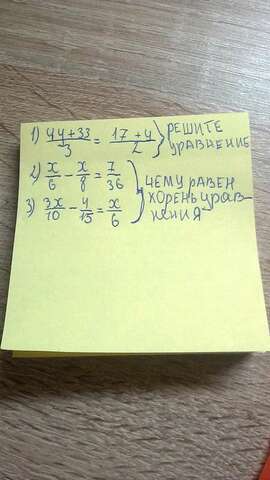 1) 4y+33/3 = 17+y/2 } РЕШИТЕ УРАВНЕНИЕ
2) x/6 - x/8 = 7/36
3) 3x/10 - 4/15 = x/6 } ЧЕМУ РАВЕН КОРЕНЬ УРАВНЕНИЯ